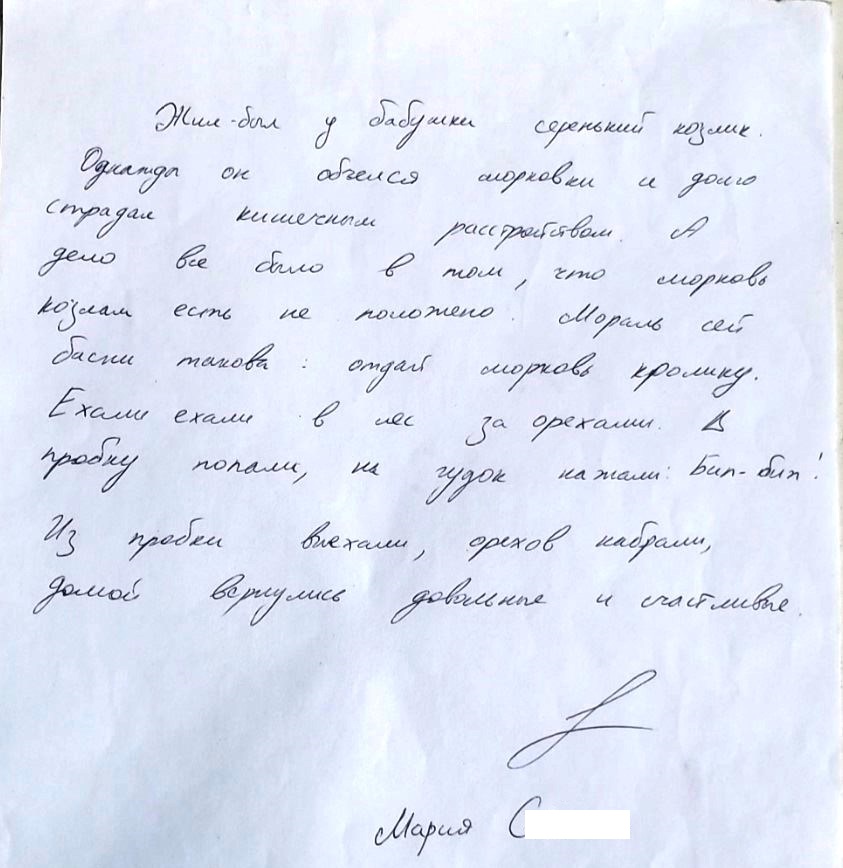 Жил-был у бабушки серенький козлик.
Однажды он объелся морковки и долго
страдал кишечным расстройством. А
дело все было в том, что морковь
козлам есть не положено. Мораль сей
басни такова: отдай морковь кролику.
Ехали ехали в лес за орехами. В
пробку попали, на гудок нажали: Бип-бип!
Из пробки выехали, орехов набрали,
домой вернулись довольные и счастливые.
Мария С